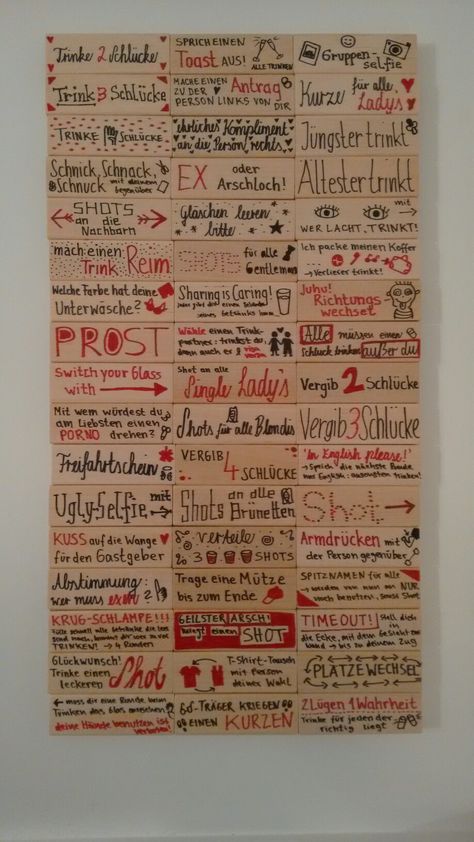 Trinke 2 Schlücke
SPRICH EINEN
Toast AUS!
ALLE TRINKEN
Gruppen-
selfie
Trink 3 Schlücke
MACHE EINEN
ZU DER Antrag
PERSON LINKS VON DIR
Kurze für alle
Ladys
TRINKE SCHLÜCKE
ehrliches Kompliment
an die Person rechts
Jüngster trinkt
Schnick, Schnack,
Schnuck mit deinem
gegenüber
EX oder
Arschloch!
Ältester trinkt
SHOTS
an die
Nachbarn
Gläschen leeren
bitte
mit
WER LACHT, TRINKT!
mach einen
Trink Reim
SHOTS für alle
Gentlemen
Ich packe meinen Koffer
→ Verlierer trinkt!
Welche Farbe hat deine
Unterwäsche?
Sharing is Caring!
Juhu!
Richtungs-
wechsel
PROST
Wähle einen Trink-
partner: trinkst du,
dann auch er
Alle müssen einen
Schluck trinken außer du
Switch your Glass
with
Shot an alle
Single Lady's
Vergib 2 Schlücke
Mit wem würdest du
am liebsten einen
PORNO drehen?
Shots für alle Blondis
Vergib 3 Schlücke
Freifahrtschein
VERGIB
4
SCHLÜCKE
'In English please!'
Ugly-Selfie mit
Shots an alle
Brünetten
Shot
KUSS auf die Wange
für den Gastgeber
Verteile
3 SHOTS
Armdrücken mit
der Person gegenüber
Abstimmung:
wer muss exen?
Trage eine Mütze
bis zum Ende
SPITZNAMEN für alle
KRUG-SCHLAMPE!!!
TRINKEN! → 4 Runden
GEILSTER ARSCH!
kriegt einen SHOT
TIMEOUT! Stell dich
in
die Ecke, mit dem Gesicht zur
Wand → bis zu deinem Zug
Glückwunsch!
Trinke einen
leckeren Shot
T-Shirt-Tausch
mit Person
deiner Wahl
PLÄTZE WECHSEL
← muss dir eine Runde beim
Trinken das Glas ansetzen
deine Hände benutzen ist
verboten!
BH-TRÄGER KRIEGEN
EINEN KURZEN
2 Lügen 1 Wahrheit
Trinke für jeden der
richtig liegt